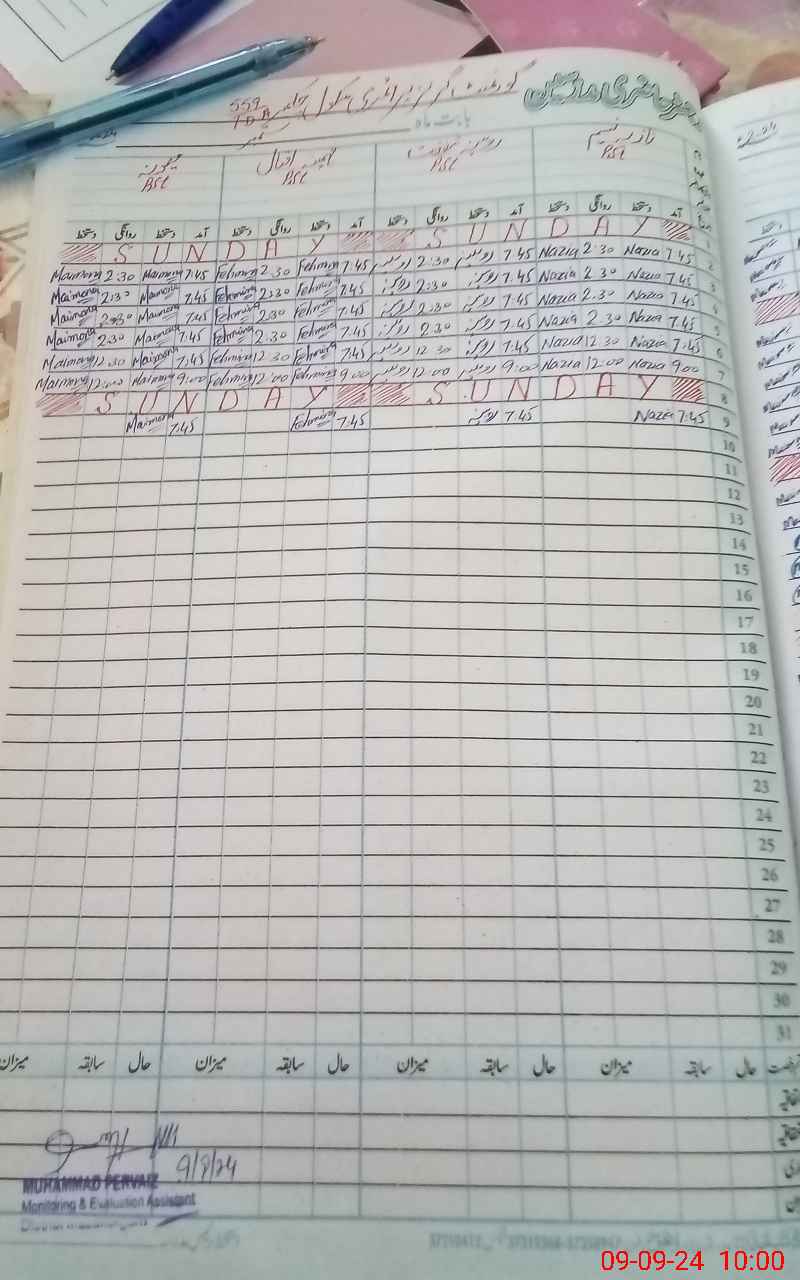 گورنمنٹ گرلز پرائمری سکول چک 559
TDA
بابت ماہ ستمبر
نازیہ نسیم روبینہ فہمینہ اقبال میمونہ
PST PST PST PST
آمد دستخط روانگی دستخط آمد دستخط روانگی دستخط آمد دستخط روانگی دستخط آمد دستخط روانگی دستخط
S U N D A Y S U N D A Y 1
Maimona 2:30 Maimona 7:45 Fehmina 2:30 Fehmina 7:45 روبینہ 2:30 روبینہ 7:45 Nazia 2:30 Nazia 7:45 2
Maimona 2:30 Maimona 7:45 Fehmina 2:30 Fehmina 7:45 روبینہ 2:30 روبینہ 7:45 Nazia 2:30 Nazia 7:45 3
Maimona 2:30 Maimona 7:45 Fehmina 2:30 Fehmina 7:45 روبینہ 2:30 روبینہ 7:45 Nazia 2:30 Nazia 7:45 4
Maimona 2:30 Maimona 7:45 Fehmina 2:30 Fehmina 7:45 روبینہ 2:30 روبینہ 7:45 Nazia 2:30 Nazia 7:45 5
Maimona 12:30 Maimona 7:45 Fehmina 12:30 Fehmina 7:45 روبینہ 12:30 روبینہ 7:45 Nazia 12:30 Nazia 7:45 6
Maimona 12:00 Maimona 9:00 Fehmina 12:00 Fehmina 9:00 روبینہ 12:00 روبینہ 9:00 Nazia 12:00 Nazia 9:00 7
S U N D A Y S U N D A Y 8
Maimona 7:45 Fehmina 7:45 روبینہ 7:45 Nazia 7:45 9
10
11
12
13
14
15
16
17
18
19
20
21
22
23
24
25
26
27
28
29
30
31
حال سابقہ میزان حال سابقہ میزان حال سابقہ میزان حال سابقہ میزان
9/9/24
MUHAMMAD PERVAIZ
Monitoring & Evaluation Assistant
09-09-24 10:00